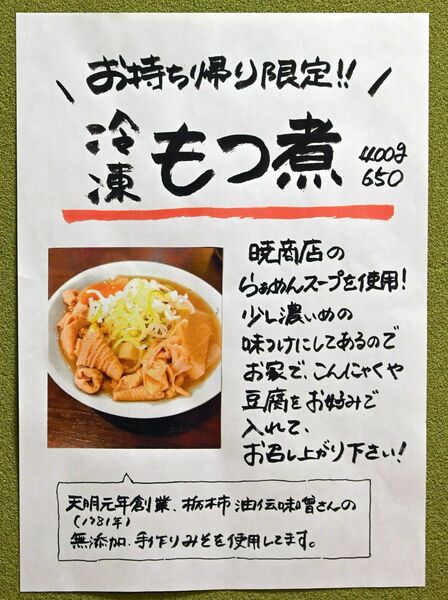 お持ち帰り限定!!
冷凍 もつ煮 400g 650
暁商店の
らぁめんスープを使用!
少し濃いめの
味つけにしてあるので
お家で、こんにゃくや
豆腐をお好みで
入れて、
お召し上がり下さい!
天明元年創業、栃木市 油伝味噌さんの
(1781年)
無添加、手作りみそを使用してます。